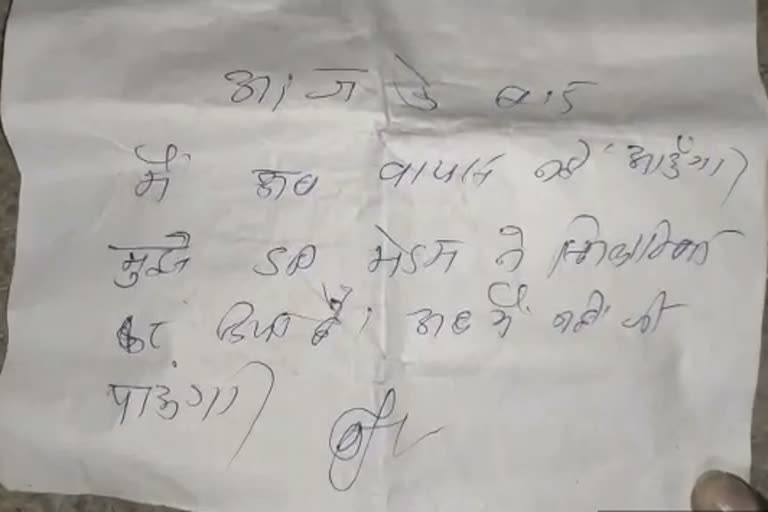 आज के बाद
मैं अब वापस नही आऊँगा
मुझे SP मेडम ने
कर दिया है। अब मैं नही जी
पाऊंगा